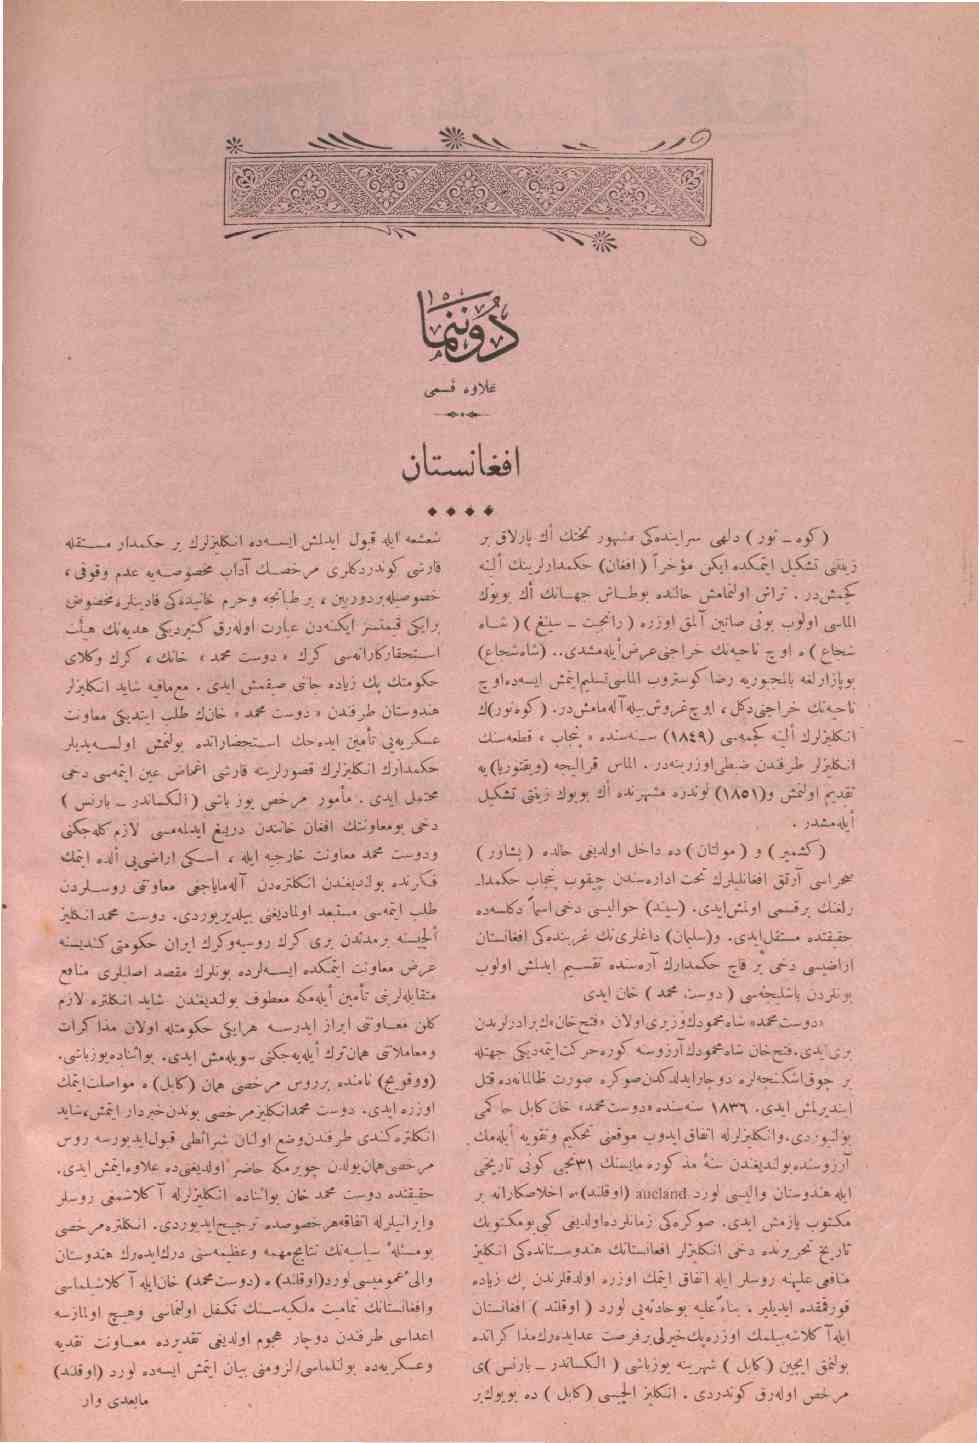 دوننما
علاوه قسمی
افغانستان
( كوه ـ نور ) دلهی سراینده‌كی مشهور تختك اك پارلاق بر
زینتی تشكیل ایتمكده ایكن مؤخراً ( افغان ) حكمدارلرینك الینه
كچمش‌در . تراش اولنمامش حالنده بوطاش جهانك اك بویوك
الماسی اولوب بونی صاتین آلمق اوزره ( رانجت ـ سینغ ) ( شاه
شجاع ) ه اوچ ناحیه‌نك خراجنی عرض ایله‌مشدی .. ( شاه شجاع )
بوپازارلغه بالمجبوریه رضا كوستروب الماسی تسلیم ایتمش ایسه‌ده اوچ
ناحیه‌نك خراجنی دكل ، اوچ غروش بیله آله‌مامش‌در . ( كوه نور ) ك
انكلیزلرك الینه كچمه‌سی (١٨٤٩) سنه‌سنده « پنجاب » قطعه‌سنك
انكلیزلر طرفندن ضبطی اوزرینه‌در . الماس قرالیچه ( ویقتوریا ) یه
تقدیم اولنمش و (١٨٥١) لوندره مشهرنده اك بویوك زینتی تشكیل
ایله‌مشدر .
( كشمیر ) و ( مولتان ) ده داخل اولدیغی حالده ( پشاور )
صحراسی آرتق افغانلیلرك تحت اداره‌سندن چیقوب پنجاب حكمدا-
رلغنك برقسمی اولمش ایدی . ( سیند ) حوالیسی دخی اسماً دكلسه‌ده
حقیقتده مستقل ایدی . و ( سلیمان ) داغلرینك غربنده‌كی افغانستان
اراضیسی دخی بر قاچ حكمدارك آره‌سنده تقسیم ایدلمش اولوب
بونلردن باشلیجه‌سی ( دوست محمد ) خان ایدی
« دوست محمد » شاه محمودك وزیری اولان « فتح خان » ك برادرلرندن
بری ایدی . فتح خان شاه محمودك آرزوسنه كوره حركت ایتمه‌دیكی جهتله
بر چوق اشكنجه‌لره دوچار ایدلدكدن صوكره صورت ظالمانه‌ده قتل
ایتدیرلمش ایدی . ١٨٣٦ سنه‌سنده « دوست محمد » خان كابل حاكمی
بولنیوردی . و انكلیزلرله اتفاق ایدوب موقعنی تحكیم و تقویه ایله‌مك
آرزوسنده بولندیغندن سنهٔ مذكوره مایسنك ٣١نجی كونی تاریخی
ایله هندوستان والیسی لورد aucland ( اوقلند ) ه اخلاصكارانه بر
مكتوب یازمش ایدی . صوكره‌كی زمانلرده اولدیغی كبی بومكتوبك
تاریخ تحریرنده دخی انكلیزلر افغانستانك هندوستانده‌كی انكلیز
منافعی علیهنه روسلر ایله اتفاق ایتمك اوزره اولدقلرندن پك زیاده
قورقمقده ایدیلر . بناءً علیه بوحادثه‌یی لورد ( اوقلند ) افغانستان
ایله آكلاشه‌بیلمك اوزره پك خیرلی بر فرصت عد ایده‌رك مذاكراتده
بولنمق ایچین ( كابل ) شهرینه یوزباشی ( الكساندر ـ بارنس ) ی
مرخص اوله‌رق كوندردی . انكلیز ایلچیسی ( كابل ) ده بویوك بر
شعشعه ایله قبول ایدلمش ایسه‌ده انكلیزلرك بر حكمدار مستقله
قارشی كوندردكلری مرخصك آداب مخصوصه‌یه عدم وقوفی ،
خصوصیله بردوربین ، بر طبانجه و حرم خانه‌ده‌كی قادینلره مخصوص
برایكی قیمتسز ایكنه‌دن عبارت اوله‌رق كتیردیكی هدیه‌نك هیئت
استحقاركارانه‌سی كرك « دوست محمد » خانك ، كرك وكلای
حكومتك پك زیاده جانی صیقمش ایدی . مع‌مافیه شاید انكلیزلر
هندوستان طرفندن « دوست محمد » خان‌ك طلب ایتدیكی معاونت
عسكریه‌یی تأمین ایده‌جك استحضاراتده بولنمش اولسه‌یدیلر
حكمدارك انكلیزلرك قصورلرینه قارشی اغماض عین ایتمه‌سی دخی
محتمل ایدی . مأمور مرخص یوز باشی ( الكساندر ـ بارنس )
دخی بومعاونتك افغان خانندن دریغ ایدلمه‌مسی لازم كله‌جكنی
ودوست محمد معاونت خارجیه ایله ، اسكی اراضی‌یی الده ایتمك
فكرنده بولندیغندن انكلتره‌دن آله‌مایاجغی معاونتی روسلردن
طلب ایتمه‌سی مستبعد اولمادیغنی بیلدیریوردی . دوست محمد انكلیز
ایلچیسنه برمدتدن بری كرك روسیه و كرك ایران حكومتی كندیسنه
عرض معاونت ایتمكده ایسه‌لرده بونلرك مقصد اصلیلری منافع
متقابله‌لرینی تأمین ایله‌مكه معطوف بولندیغندن شاید انكلتره لازم
كلن معاونتی ابراز ایدرسه هرایكی حكومتله اولان مذاكرات
ومعاملاتی همان ترك ایله‌یه‌جكنی سویله‌مش ایدی . بواثناده یوزباشی
( ووقویچ ) نامنده بر روس مرخصی همان ( كابل ) ه مواصلت ایتمك
اوزره ایدی . دوست محمد انكلیز مرخصی بوندن خبردار ایتمش ، شاید
انكلتره كندی طرفندن وضع اولنان شرائطی قبول ایدیورسه روس
مرخصی همان یولدن چویرمكه حاضر اولدیغنی‌ده علاوه ایتمش ایدی .
حقیقتده دوست محمد خان بواثناده انكلیزلرله آكلاشمغی روسلر
و ایرانیلرله اتفاقه هر خصوصده ترجیح ایدیوردی . انكلتره مرخصی
بومسئلهٔ سیاسیه‌نك نتایج مهمه و عظیمه‌سنی درك ایده‌رك هندوستان
والیٔ عمومیسی لورد ( اوقلند ) ه ( دوست محمد ) خان ایله آكلاشیلماسی
و افغانستانك تمامیت ملكیه‌سنك تكفل اولنماسی و هیچ اولمازسه
اعداسی طرفندن دوچار هجوم اولدیغی تقدیرده معاونت نقدیه
وعسكریه‌ده بولنلماسی لزومنی بیان ایتمش ایسه‌ده لورد ( اوقلند )
مابعدی وار